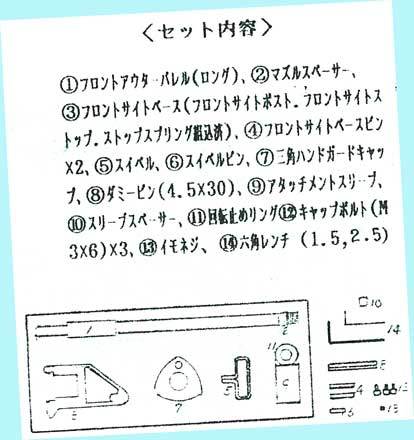 〈セット内容〉
①フロントアウターバレル(ロング)、②マズルスペーサー、
③フロントサイトベース(フロントサイトポスト.フロントサイトス
トップ.ストップスプリング組込済)、④フロントサイトベースピン
×2、⑤スイベル、⑥スイベルピン、⑦三角ハンドガードキャッ
プ、⑧ダミーピン(4.5×30)、⑨アタッチメントスリーブ、
⑩スリーブスペーサー、⑪回転止めリング⑫キャップボルト(M
3×6)×3、⑬イモネジ、⑭六角レンチ(1.5,2.5)
10
1
2
14
11
8
3
7
5
4
12
6
13